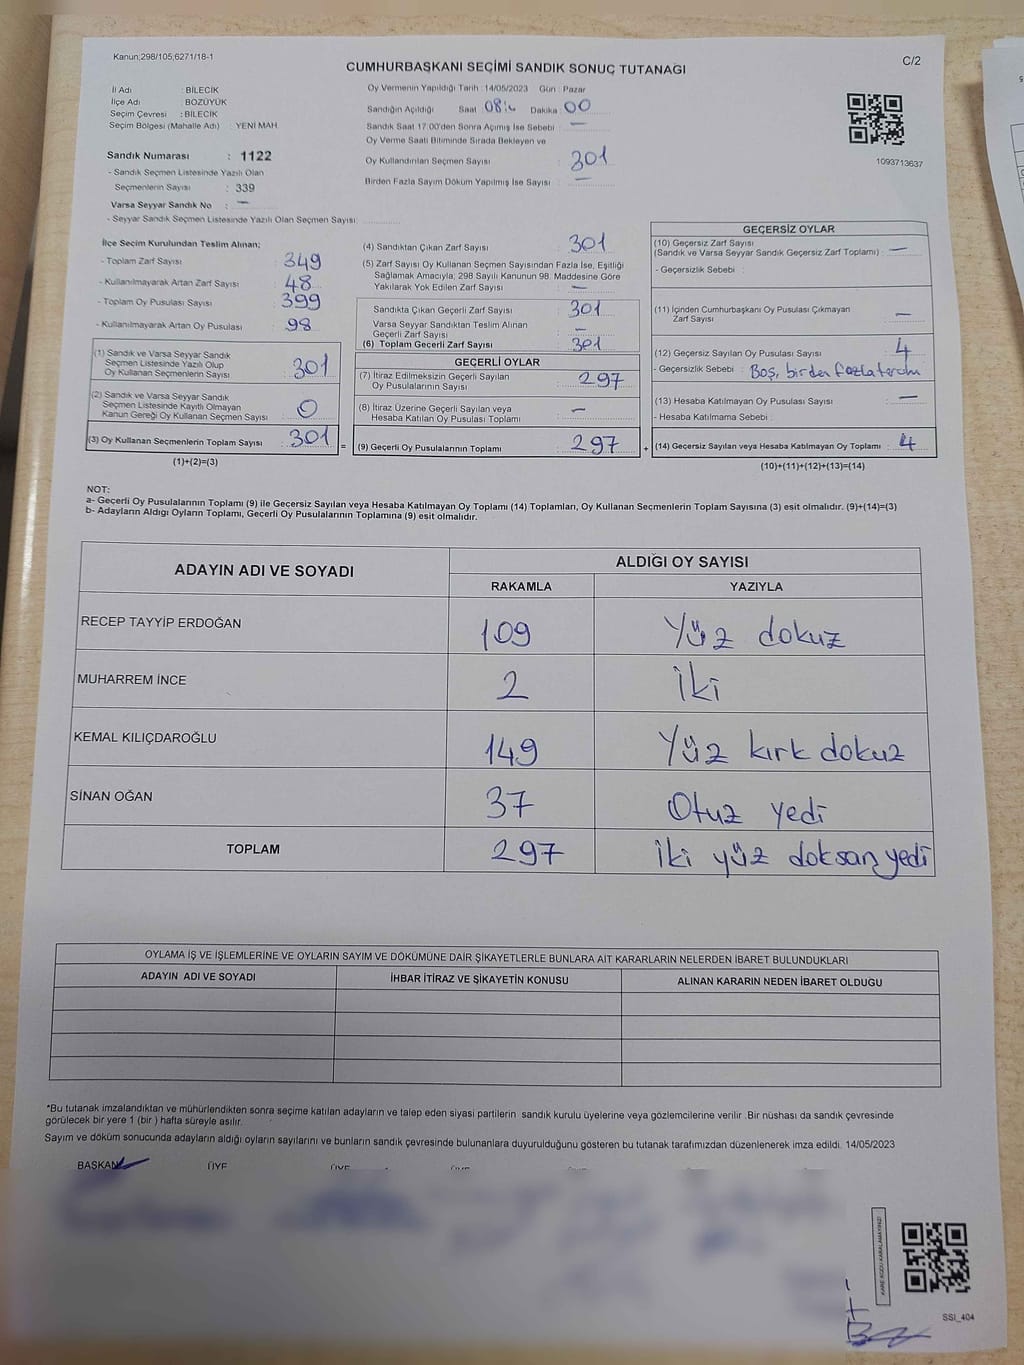 Kanun;298/105;6271/18-1
C/2
CUMHURBAŞKANI SEÇİMİ SANDIK SONUÇ TUTANAĞI
İl Adı : BİLECİK
İlçe Adı : BOZÜYÜK
Seçim Çevresi : BİLECİK
Seçim Bölgesi (Mahalle Adı) : YENİ MAH.
Sandık Numarası : 1122
- Sandık Seçmen Listesinde Yazılı Olan
Seçmenlerin Sayısı : 339
Varsa Seyyar Sandık No : —
- Seyyar Sandık Seçmen Listesinde Yazılı Olan Seçmen Sayısı :
Oy Vermenin Yapıldığı Tarih : 14/05/2023 Gün : Pazar
Sandığın Açıldığı Saat 08 Dakika 00
Sandık Saat 17:00'den Sonra Açımış İse Sebebi : —
Oy Verme Saati Bitiminde Sırada Bekleyen ve
Oy Kullandırılan Seçmen Sayısı : 301
Birden Fazla Sayım Döküm Yapılmış İse Sayısı : —
1093713637
İlçe Seçim Kurulundan Teslim Alınan;
- Toplam Zarf Sayısı : 349
- Kullanılmayarak Artan Zarf Sayısı : 48
- Toplam Oy Pusulası Sayısı : 399
- Kullanılmayarak Artan Oy Pusulası : 98
(1) Sandık ve Varsa Seyyar Sandık
Seçmen Listesinde Yazılı Olup
Oy Kullanan Seçmenlerin Sayısı : 301
(2) Sandık ve Varsa Seyyar Sandık
Seçmen Listesinde Kayıtlı Olmayan
Kanun Gereği Oy Kullanan Seçmen Sayısı : 0
(3) Oy Kullanan Seçmenlerin Toplam Sayısı : 301 =
(1)+(2)=(3)
(4) Sandıktan Çıkan Zarf Sayısı : 301
(5) Zarf Sayısı Oy Kullanan Seçmen Sayısından Fazla İse, Eşitliği
Sağlamak Amacıyla; 298 Sayılı Kanunun 98. Maddesine Göre
Yakılarak Yok Edilen Zarf Sayısı : —
Sandıkta Çıkan Geçerli Zarf Sayısı : 301
Varsa Seyyar Sandıktan Teslim Alınan
Geçerli Zarf Sayısı : —
(6) Toplam Geçerli Zarf Sayısı : 301
GEÇERLİ OYLAR
(7) İtiraz Edilmeksizin Geçerli Sayılan
Oy Pusulalarının Sayısı : 297
(8) İtiraz Üzerine Geçerli Sayılan veya
Hesaba Katılan Oy Pusulası Toplamı : —
(9) Geçerli Oy Pusulalarının Toplamı : 297 +
GEÇERSİZ OYLAR
(10) Geçersiz Zarf Sayısı
(Sandık ve Varsa Seyyar Sandık Geçersiz Zarf Toplamı) : —
- Geçersizlik Sebebi :
(11) İçinden Cumhurbaşkanı Oy Pusulası Çıkmayan
Zarf Sayısı : —
(12) Geçersiz Sayılan Oy Pusulası Sayısı : 4
- Geçersizlik Sebebi : Boş, birden fazla tercih
(13) Hesaba Katılmayan Oy Pusulası Sayısı : —
- Hesaba Katılmama Sebebi :
(14) Geçersiz Sayılan veya Hesaba Katılmayan Oy Toplamı : 4
(10)+(11)+(12)+(13)=(14)
NOT:
a- Geçerli Oy Pusulalarının Toplamı (9) ile Geçersiz Sayılan veya Hesaba Katılmayan Oy Toplamı (14) Toplamları, Oy Kullanan Seçmenlerin Toplam Sayısına (3) eşit olmalıdır. (9)+(14)=(3)
b- Adayların Aldığı Oyların Toplamı, Geçerli Oy Pusulalarının Toplamına (9) eşit olmalıdır.
ADAYIN ADI VE SOYADI ALDIĞI OY SAYISI
RAKAMLA YAZIYLA
RECEP TAYYİP ERDOĞAN 109 Yüz dokuz
MUHARREM İNCE 2 İki
KEMAL KILIÇDAROĞLU 149 Yüz kırk dokuz
SİNAN OĞAN 37 Otuz yedi
TOPLAM 297 İki yüz doksan yedi
OYLAMA İŞ VE İŞLEMLERİNE VE OYLARIN SAYIM VE DÖKÜMÜNE DAİR ŞİKAYETLERLE BUNLARA AİT KARARLARIN NELERDEN İBARET BULUNDUKLARI
ADAYIN ADI VE SOYADI İHBAR İTİRAZ VE ŞİKAYETİN KONUSU ALINAN KARARIN NEDEN İBARET OLDUĞU
*Bu tutanak imzalandıktan ve mühürlendikten sonra seçime katılan adayların ve talep eden siyasi partilerin sandık kurulu üyelerine veya gözlemcilerine verilir .Bir nüshası da sandık çevresinde
görülecek bir yere 1 (bir ) hafta süreyle asılır.
Sayım ve döküm sonucunda adayların aldığı oyların sayılarını ve bunların sandık çevresinde bulunanlara duyurulduğunu gösteren bu tutanak tarafımızdan düzenlenerek imza edildi. 14/05/2023
BAŞKAN ÜYE ÜYE ÜYE
KARE KODU KARALAMAYINIZ!
SSI_404